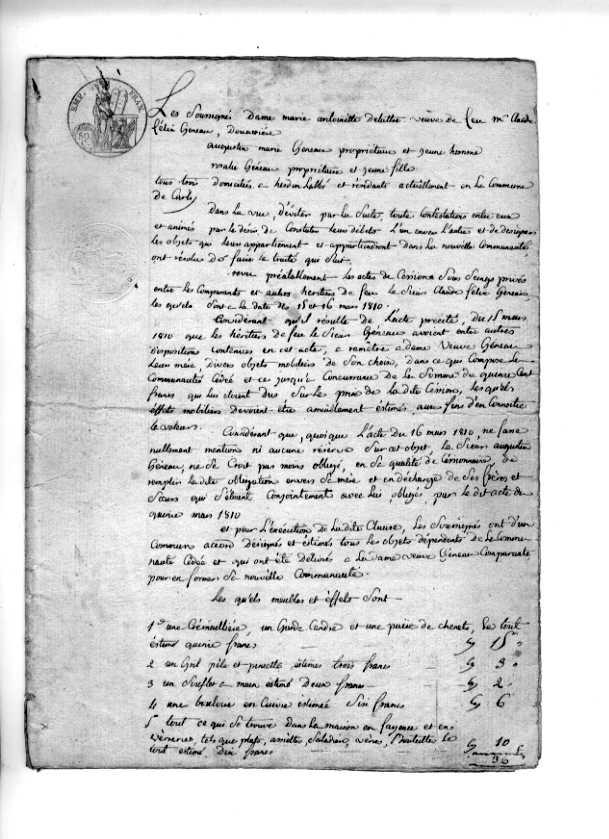 EMP. FRAN
Les Soussigné Dame marie antoinette veuve de feu mr Claude
félix Géneau, Douairière
augustin marie Géneau propriétaire et jeune homme
rosalie Géneau propriétaire et jeune fille
tous trois domiciliés a et résidants actuellement en la Commune
de
Dans la vue, d'éviter par la Suite, toute Contestations entre eux
et animés par le désir de Constater leurs débets L'un envers L'autre et de désigner
les objets qui leur appartiennent et appartiendront dans la nouvelle Communauté,
ont résolus de faire le traité qui Suit.
revu préalablement les actes de Cessions Sous Seings privés
entre les Comparants et autres héritiers de feu le Sieur Claude félix Géneau,
les quels Sont a la date des 15 et 16 mars 1810.
Considérant qu'il résulte de L'acte précité, du 15 mars
1810 que les héritiers de feu le Sieur Géneau avoient entre autres
dispositions contenues en cet acte, a remettre a dame Veuve Géneau
Leur mère, divers objets mobiliers de Son choix, dans ce qui Compose la
Communauté Cédée et ce jusqu'a Concurrence de la Somme de quinze Cent
francs qui lui étoient dus Sur le prix de la dite Cession, les quels
effets mobiliers devoient être amiablement estimés aux fins d'en Connoitre
la valeur.
Considérant que, quoique L'acte du 16 mars 1810 ne fasse
nullement mention ni aucune réserve Sur cet objet, le Sieur augustin
Géneau, ne Se Croit pas moins obligé, en Sa qualité de Céssionnaire, de
remplir la dite obligation envers Sa mère et en décharge de Ses frères et
Sœurs qui S'étoient Conjointement avec lui, obligés, par le dit acte du
quinze mars 1810
et pour L'éxécution de la dite Clause, les Soussignés ont d'un
Commun accord désignés et éstimés tous les objets dépendants de la Commu-
nauté Cédée et qui ont été délivrés a La dame veuve Géneau Comparante
pour en former Sa nouvelle Communauté.
Les quels meubles et éffets Sont
1° une Crémaillière, un Garde Cendre et une paire de chenets, Le tout
éstimé quinze francs 15 "
2 un Gril pele et pincette éstimés trois francs 3 "
3 un Souflet a main estimé Deux francs 2 "
4 une en Cuivre éstimée Six francs 6
5 tout ce qui Se trouve dans la maison en fayence et en
verreries, tels que plats, assiettes, Saladiers, verres, bouteilles le
tout estimé Dix francs 10
36